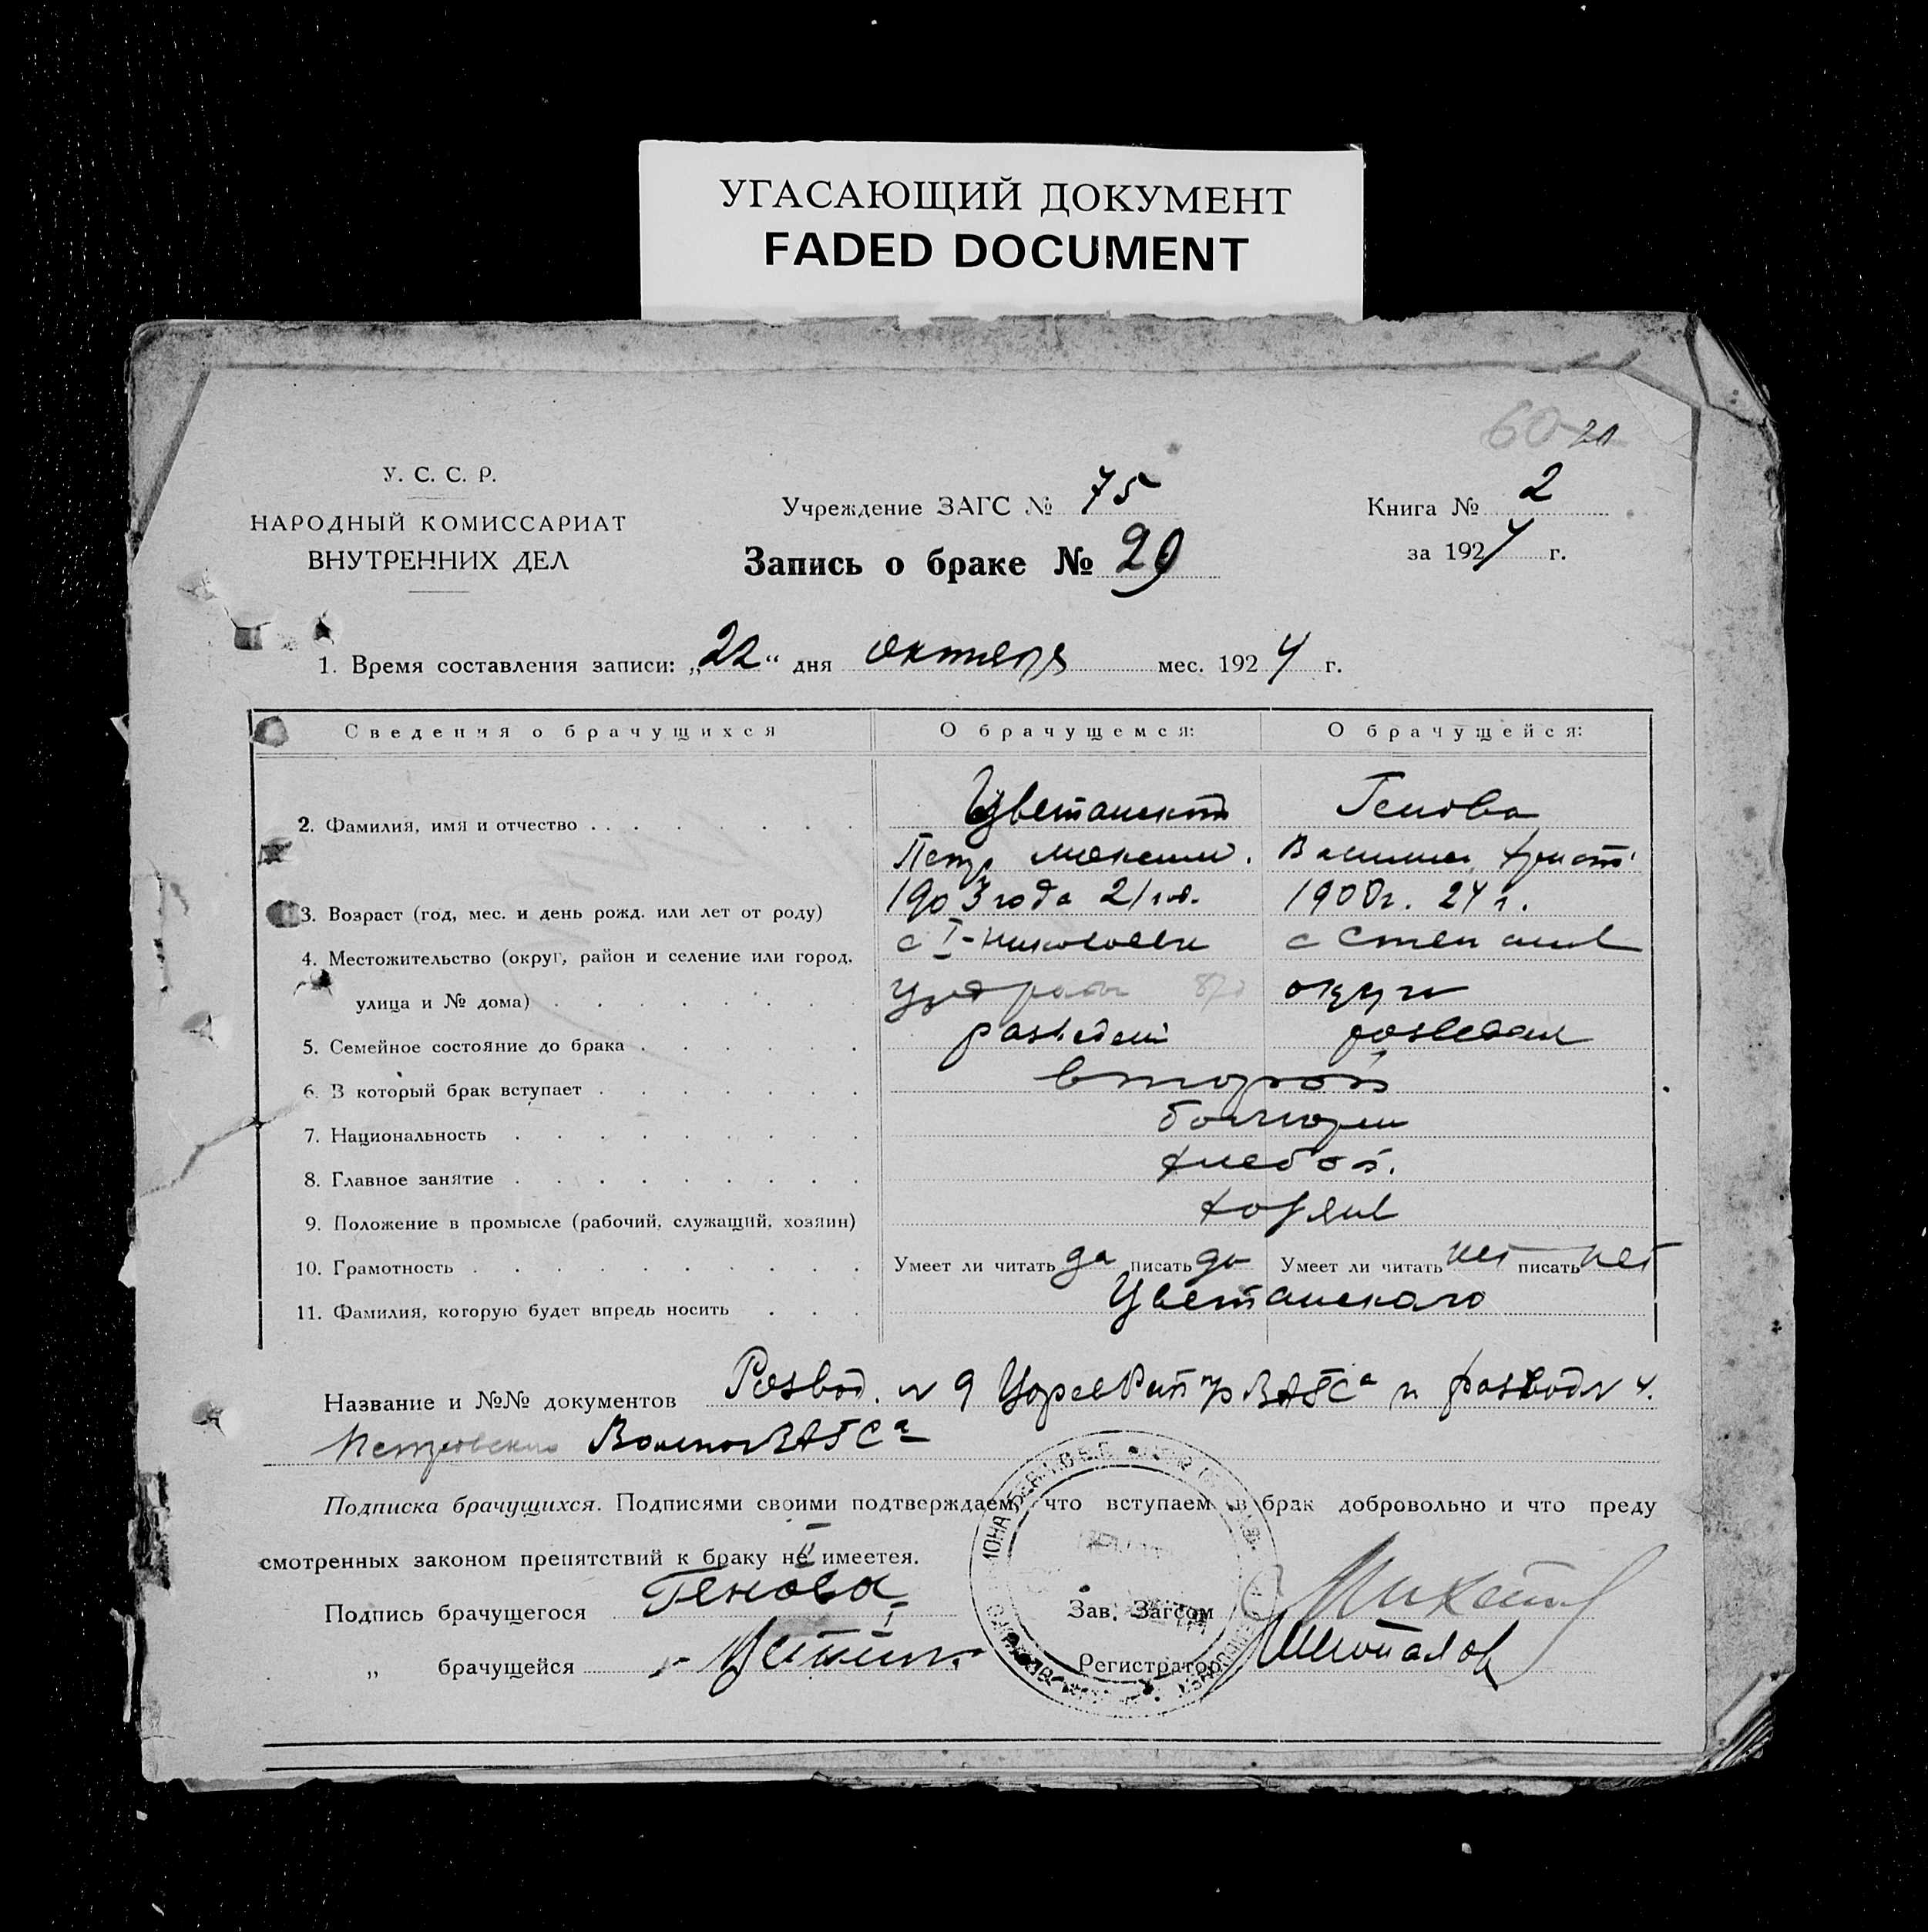 УГАСАЮЩИЙ ДОКУМЕНТ
FADED DOCUMENT
60 20
У. С. С. Р.
НАРОДНЫЙ КОМИССАРИАТ
ВНУТРЕННИХ ДЕЛ
Учреждение ЗАГС № 75
Запись о браке № 29
Книга № 2
за 1924 г.
1. Время составления записи: „22“ дня октября мес. 1924 г.
Сведения о брачущихся О брачущемся: О брачущейся:
2. Фамилия, имя и отчество Генова
Петр
3. Возраст (год, мес. и день рожд. или лет от роду) 1903 года 21 1900г. 24 г.
4. Местожительство (округ, район и селение или город, с I-Николаевк с
улица и № дома) округи
5. Семейное состояние до брака разведен разведен
6. В который брак вступает второй
7. Национальность болгоры
8. Главное занятие хлебоп.
9. Положение в промысле (рабочий, служащий, хозяин) хозяив
10. Грамотность Умеет ли читать да писать да Умеет ли читать нет писать нет
11. Фамилия, которую будет впредь носить Цветанскаго
Название и №№ документов Развод. № 9 ЗАГСа и развод № 4.
ЗАГСа
Подписка брачущихся. Подписями своими подтверждаем, что вступаем в брак добровольно и что преду
смотренных законом препятствий к браку не имеется.
II
Подпись брачущегося Генова Зав. Загсом
I
„ брачущейся Регистратор